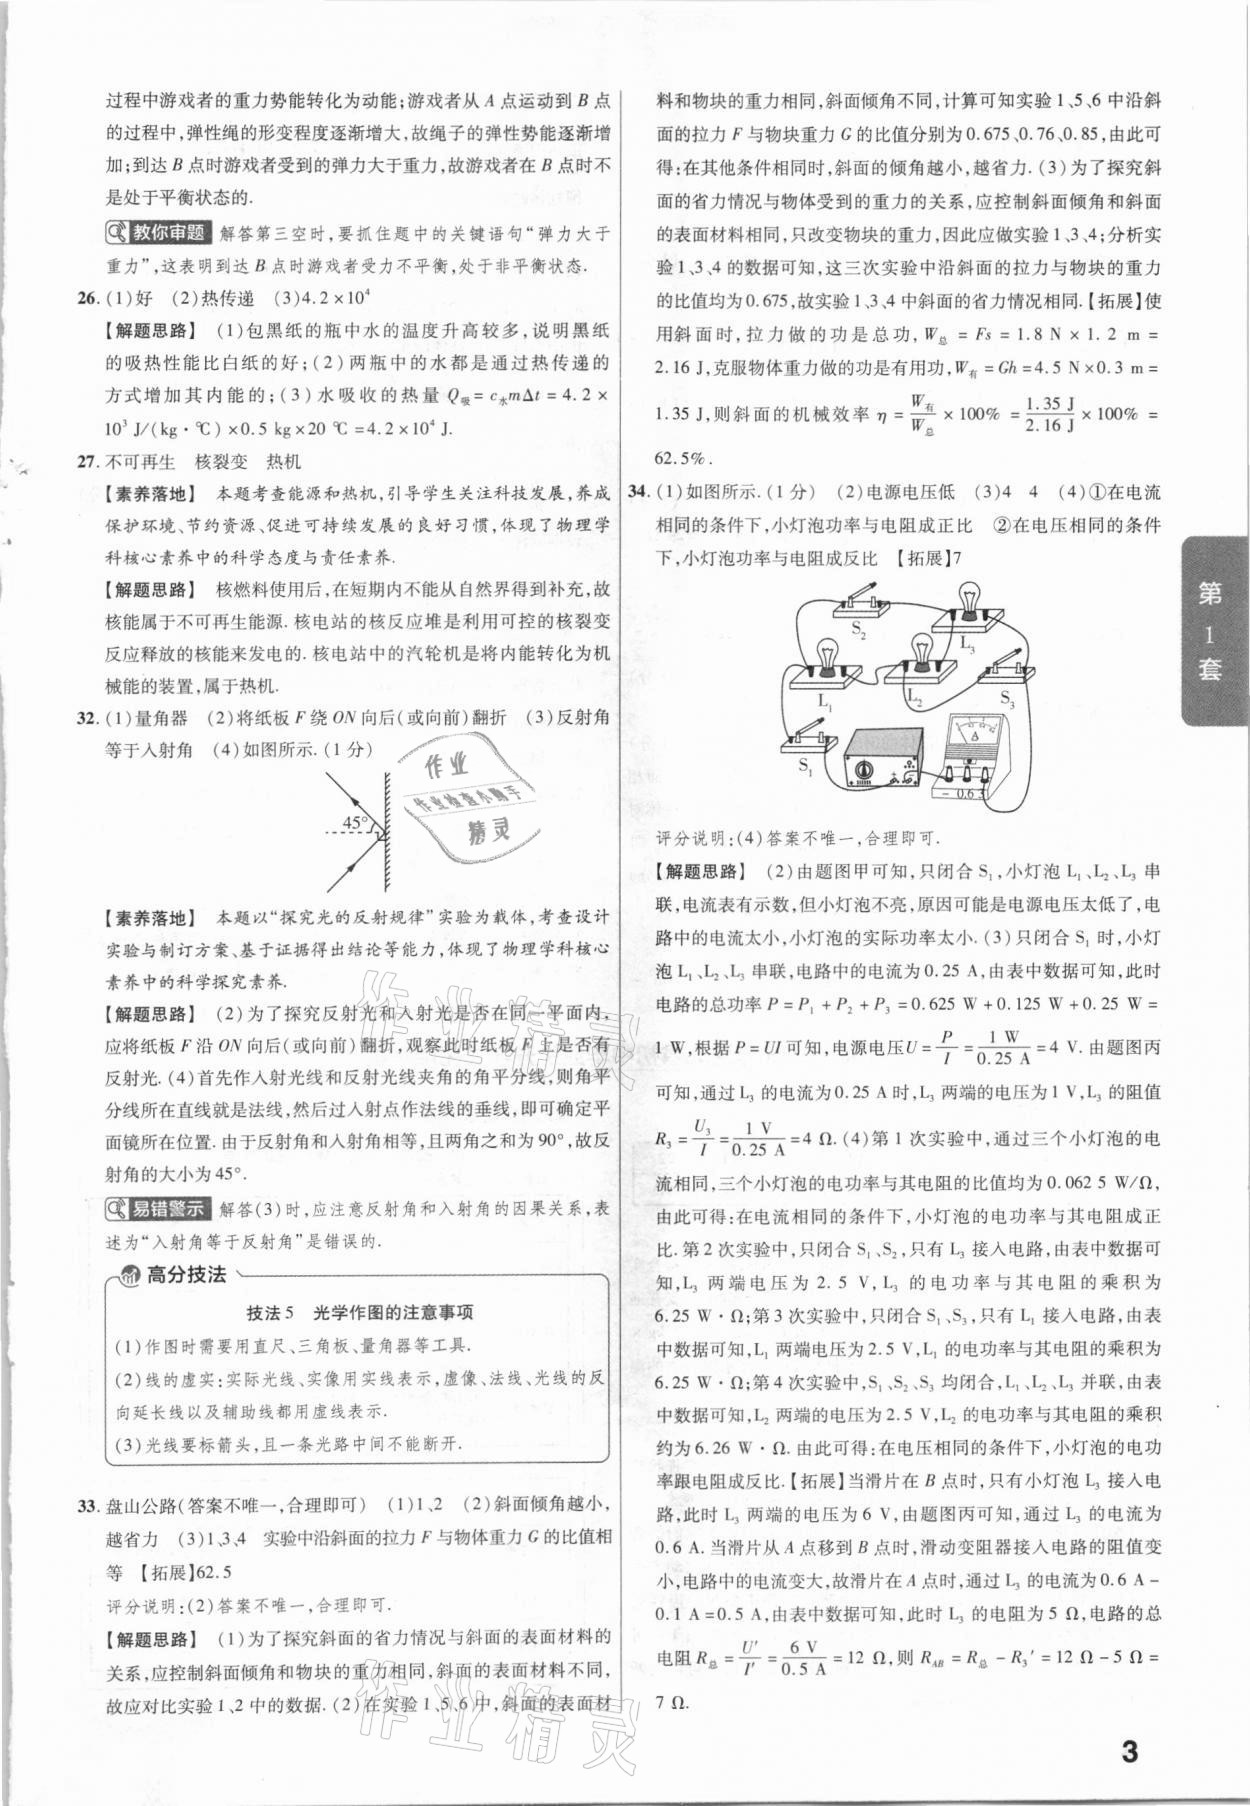 过程中游戏者的重力势能转化为动能;游戏者从 A 点运动到 B 点
的过程中,弹性绳的形变程度逐渐增大,故绳子的弹性势能逐渐增
加;到达 B 点时游戏者受到的弹力大于重力,故游戏者在 B 点时不
是处于平衡状态的.
教你审题 解答第三空时,要抓住题中的关键语句“弹力大于
重力”,这表明到达 B 点时游戏者受力不平衡,处于非平衡状态.
26. (1)好 (2)热传递 (3)4.2×10⁴
【解题思路】 (1)包黑纸的瓶中水的温度升高较多,说明黑纸
的吸热性能比白纸的好;(2)两瓶中的水都是通过热传递的
方式增加其内能的;(3)水吸收的热量 Q吸=c水mΔt=4.2×
10³ J/(kg·℃)×0.5 kg×20 ℃=4.2×10⁴ J.
27. 不可再生 核裂变 热机
【素养落地】 本题考查能源和热机,引导学生关注科技发展,养成
保护环境、节约资源、促进可持续发展的良好习惯,体现了物理学
科核心素养中的科学态度与责任素养.
【解题思路】 核燃料使用后,在短期内不能从自然界得到补充,故
核能属于不可再生能源. 核电站的核反应堆是利用可控的核裂变
反应释放的核能来发电的. 核电站中的汽轮机是将内能转化为机
械能的装置,属于热机.
32. (1)量角器 (2)将纸板 F 绕 ON 向后(或向前)翻折 (3)反射角
等于入射角 (4)如图所示.(1分)
45°
作业
作业检查小助手
精灵
【素养落地】 本题以“探究光的反射规律”实验为载体,考查设计
实验与制订方案、基于证据得出结论等能力,体现了物理学科核心
素养中的科学探究素养.
【解题思路】 (2)为了探究反射光和入射光是否在同一平面内,
应将纸板 F 沿 ON 向后(或向前)翻折,观察此时纸板 F 上是否有
反射光.(4)首先作入射光线和反射光线夹角的角平分线,则角平
分线所在直线就是法线,然后过入射点作法线的垂线,即可确定平
面镜所在位置. 由于反射角和入射角相等,且两角之和为 90°,故反
射角的大小为 45°.
易错警示 解答(3)时,应注意反射角和入射角的因果关系,表
述为“入射角等于反射角”是错误的.
高分技法
技法5 光学作图的注意事项
(1)作图时需要用直尺、三角板、量角器等工具.
(2)线的虚实:实际光线、实像用实线表示,虚像、法线、光线的反
向延长线以及辅助线都用虚线表示.
(3)光线要标箭头,且一条光路中间不能断开.
33. 盘山公路(答案不唯一,合理即可) (1)1、2 (2)斜面倾角越小,
越省力 (3)1、3、4 实验中沿斜面的拉力 F 与物体重力 G 的比值相
等 【拓展】62.5
评分说明:(2)答案不唯一,合理即可.
【解题思路】 (1)为了探究斜面的省力情况与斜面的表面材料的
关系,应控制斜面倾角和物块的重力相同,斜面的表面材料不同,
故应对比实验1、2中的数据.(2)在实验1、5、6中,斜面的表面材
料和物块的重力相同,斜面倾角不同,计算可知实验1、5、6中沿斜
面的拉力 F 与物块重力 G 的比值分别为 0.675、0.76、0.85,由此可
得:在其他条件相同时,斜面的倾角越小,越省力.(3)为了探究斜
面的省力情况与物体受到的重力的关系,应控制斜面倾角和斜面
的表面材料相同,只改变物块的重力,因此应做实验1、3、4;分析实
验1、3、4的数据可知,这三次实验中沿斜面的拉力与物块的重力
的比值均为0.675,故实验1、3、4中斜面的省力情况相同.【拓展】使
用斜面时,拉力做的功是总功,W总=Fs=1.8 N×1.2 m=
2.16 J,克服物体重力做的功是有用功,W有=Gh=4.5 N×0.3 m=
1.35 J,则斜面的机械效率 η=W有/W总×100%=1.35 J/2.16 J×100%=
62.5%.
34. (1)如图所示.(1分) (2)电源电压低 (3)4 4 (4)①在电流
相同的条件下,小灯泡功率与电阻成正比 ②在电压相同的条件
下,小灯泡功率与电阻成反比 【拓展】7
S₂ L₃
L₁ L₂ S₃
S₁ A
- 0.6 3
评分说明:(4)答案不唯一,合理即可.
【解题思路】 (2)由题图甲可知,只闭合 S₁,小灯泡 L₁、L₂、L₃ 串
联,电流表有示数,但小灯泡不亮,原因可能是电源电压太低了,电
路中的电流太小,小灯泡的实际功率太小.(3)只闭合 S₁ 时,小灯
泡 L₁、L₂、L₃ 串联,电路中的电流为 0.25 A,由表中数据可知,此时
电路的总功率 P=P₁+P₂+P₃=0.625 W+0.125 W+0.25 W=
1 W,根据 P=UI 可知,电源电压 U=P/I=1 W/0.25 A=4 V. 由题图丙
可知,通过 L₃ 的电流为 0.25 A 时,L₃ 两端的电压为 1 V,L₃ 的阻值
R₃=U₃/I=1 V/0.25 A=4 Ω.(4)第1次实验中,通过三个小灯泡的电
流相同,三个小灯泡的电功率与其电阻的比值均为 0.062 5 W/Ω,
由此可得:在电流相同的条件下,小灯泡的电功率与其电阻成正
比. 第2次实验中,只闭合 S₁、S₂,只有 L₃ 接入电路,由表中数据可
知,L₃ 两端电压为 2.5 V,L₃ 的电功率与其电阻的乘积为
6.25 W·Ω;第3次实验中,只闭合 S₁、S₃,只有 L₁ 接入电路,由表
中数据可知,L₁ 两端电压为 2.5 V,L₁ 的电功率与其电阻的乘积为
6.25 W·Ω;第4次实验中,S₁、S₂、S₃ 均闭合,L₁、L₂、L₃ 并联,由表
中数据可知,L₂ 两端的电压为 2.5 V,L₂ 的电功率与其电阻的乘积
约为 6.26 W·Ω. 由此可得:在电压相同的条件下,小灯泡的电功
率跟电阻成反比.【拓展】当滑片在 B 点时,只有小灯泡 L₃ 接入电
路,此时 L₃ 两端的电压为 6 V,由题图丙可知,此时电路中的电流为
0.6 A. 当滑片从 A 点移到 B 点时,滑动变阻器接入电路的阻值变
小,电路中的电流变大,故滑片在 A 点时,通过 L₃ 的电流为 0.6 A-
0.1 A=0.5 A,由表中数据可知,此时 L₃ 的电阻为 5 Ω,电路的总
电阻 R总=U′/I′=6 V/0.5 A=12 Ω,则 R_AB=R总-R₃′=12 Ω-5 Ω=
7 Ω.
第1套
作业精灵
作业精灵
3